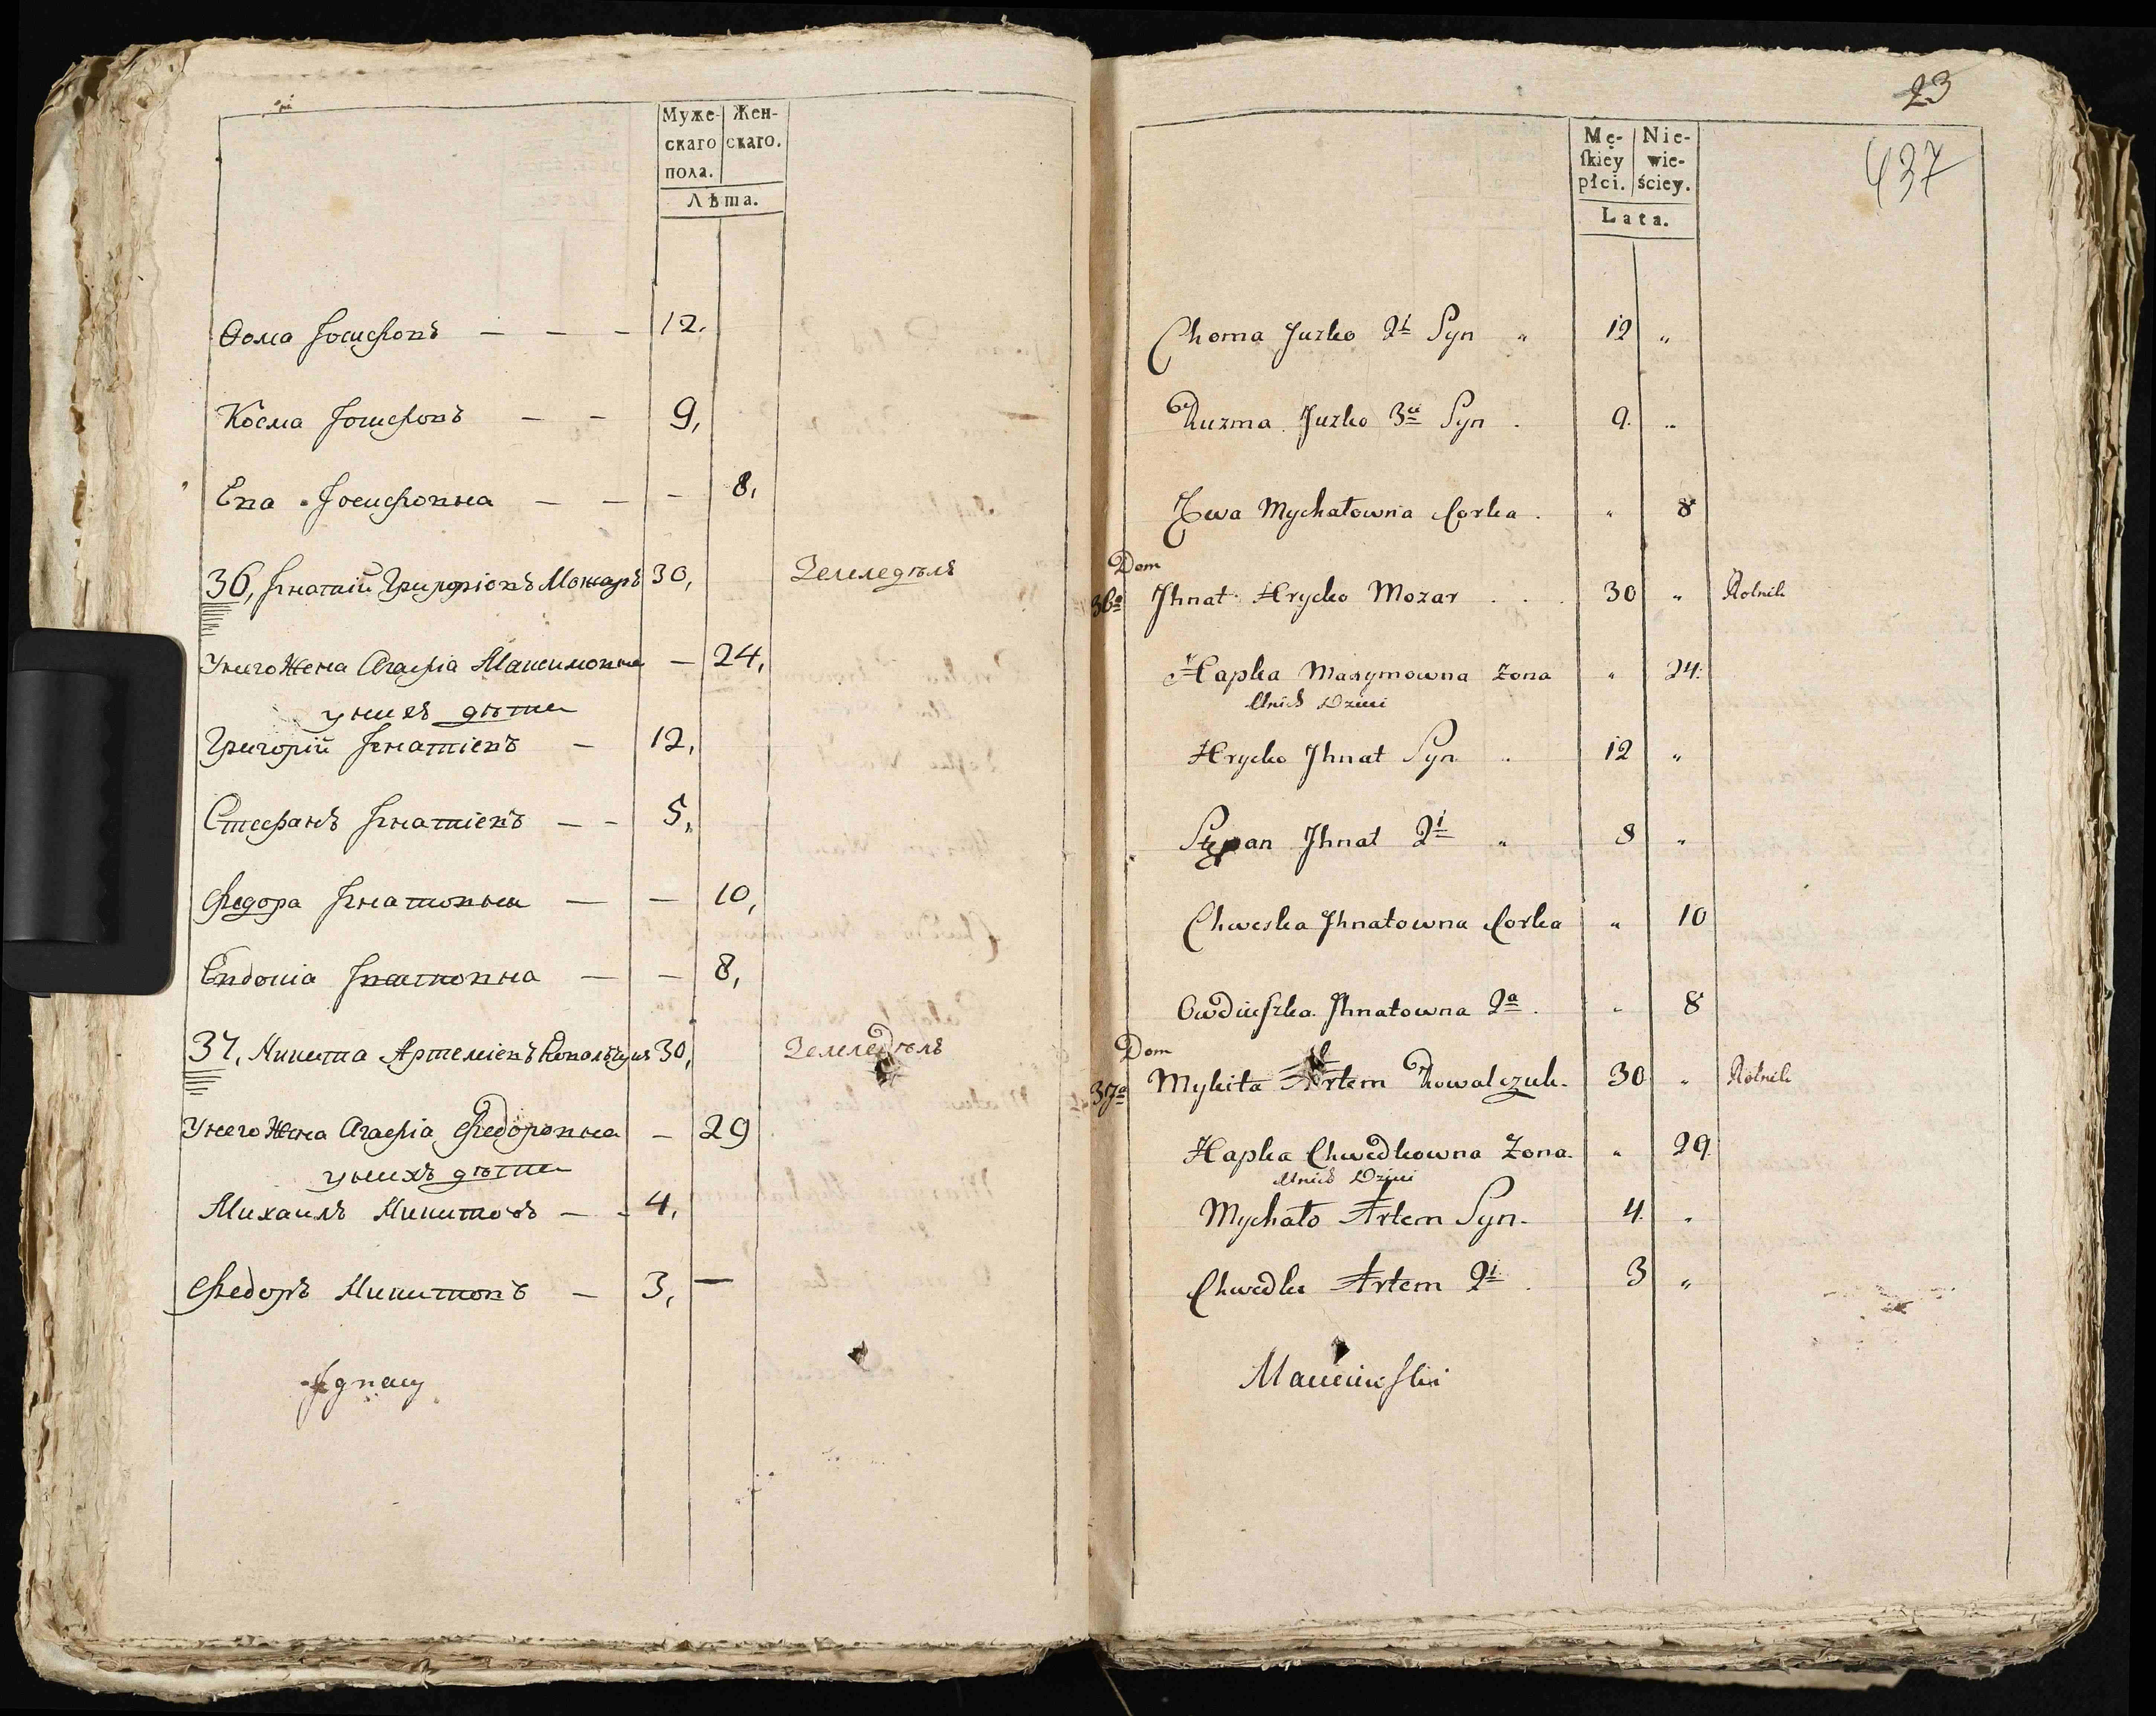 Муже- Жен-
скаго скаго.
пола.
Лѣта.
Ѳома Іосифовъ — — — 12.
Косма Іосифовъ — — 9,
Ева Іосифовна — — — 8,
36, Игнатій Григоріевъ Можаръ 30, Земледѣлъ
У него Жена Агафіа Максимовна — 24,
у нихъ дѣти
Григорій Игнатіевъ — 12,
Стефанъ Игнатіевъ — — 5,
Федора Игнатовна — — 10,
Евдокіа Игнатовна — — 8,
37, Никита Артеміевъ Ковальчукъ 30, Земледѣлъ
У него Жена Агафіа Федоровна — 29
у нихъ дѣти
Михаилъ Никитовъ — — 4,
Федоръ Никитовъ — 3, —
Ignacy
23
437
Mę- Nie-
ſkiey wie-
płci. ściey.
Lata.
Choma Juzko 2i Syn „ 12 „
Kuzma Juzko 3ci Syn . 9. „
Ewa Mychałowna Corka . „ 8
Dom
36o Jhnat Hrycko Mozar . . . 30 „ Rolnik
Hapka Maxymowna Zona „ 24.
Unich Dzieci
Hrycko Jhnat Syn „ 12 „
Stepan Jhnat 2i „ 8 „
Chweska Jhnatowna Corka „ 10
Owdiuſzka Jhnatowna 2a . „ 8
Dom
37o Mykita Artem Kowalczuk. 30 „ Rolnik
Hapka Chwedkowna Zona. „ 29.
Unich Dzieci
Mychało Artem Syn. 4. „
Chwedko Artem 2i . 3 „